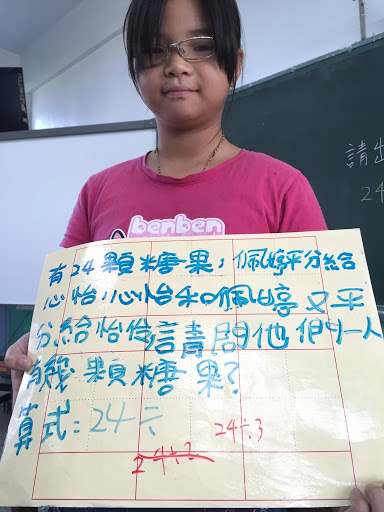 請出
24
benben
有24顆糖果,佩婷平分給
心怡,心怡和佩婷又平
分給怡伶請問他們一人
有幾顆糖果?
算式:24÷
24÷3
24÷2